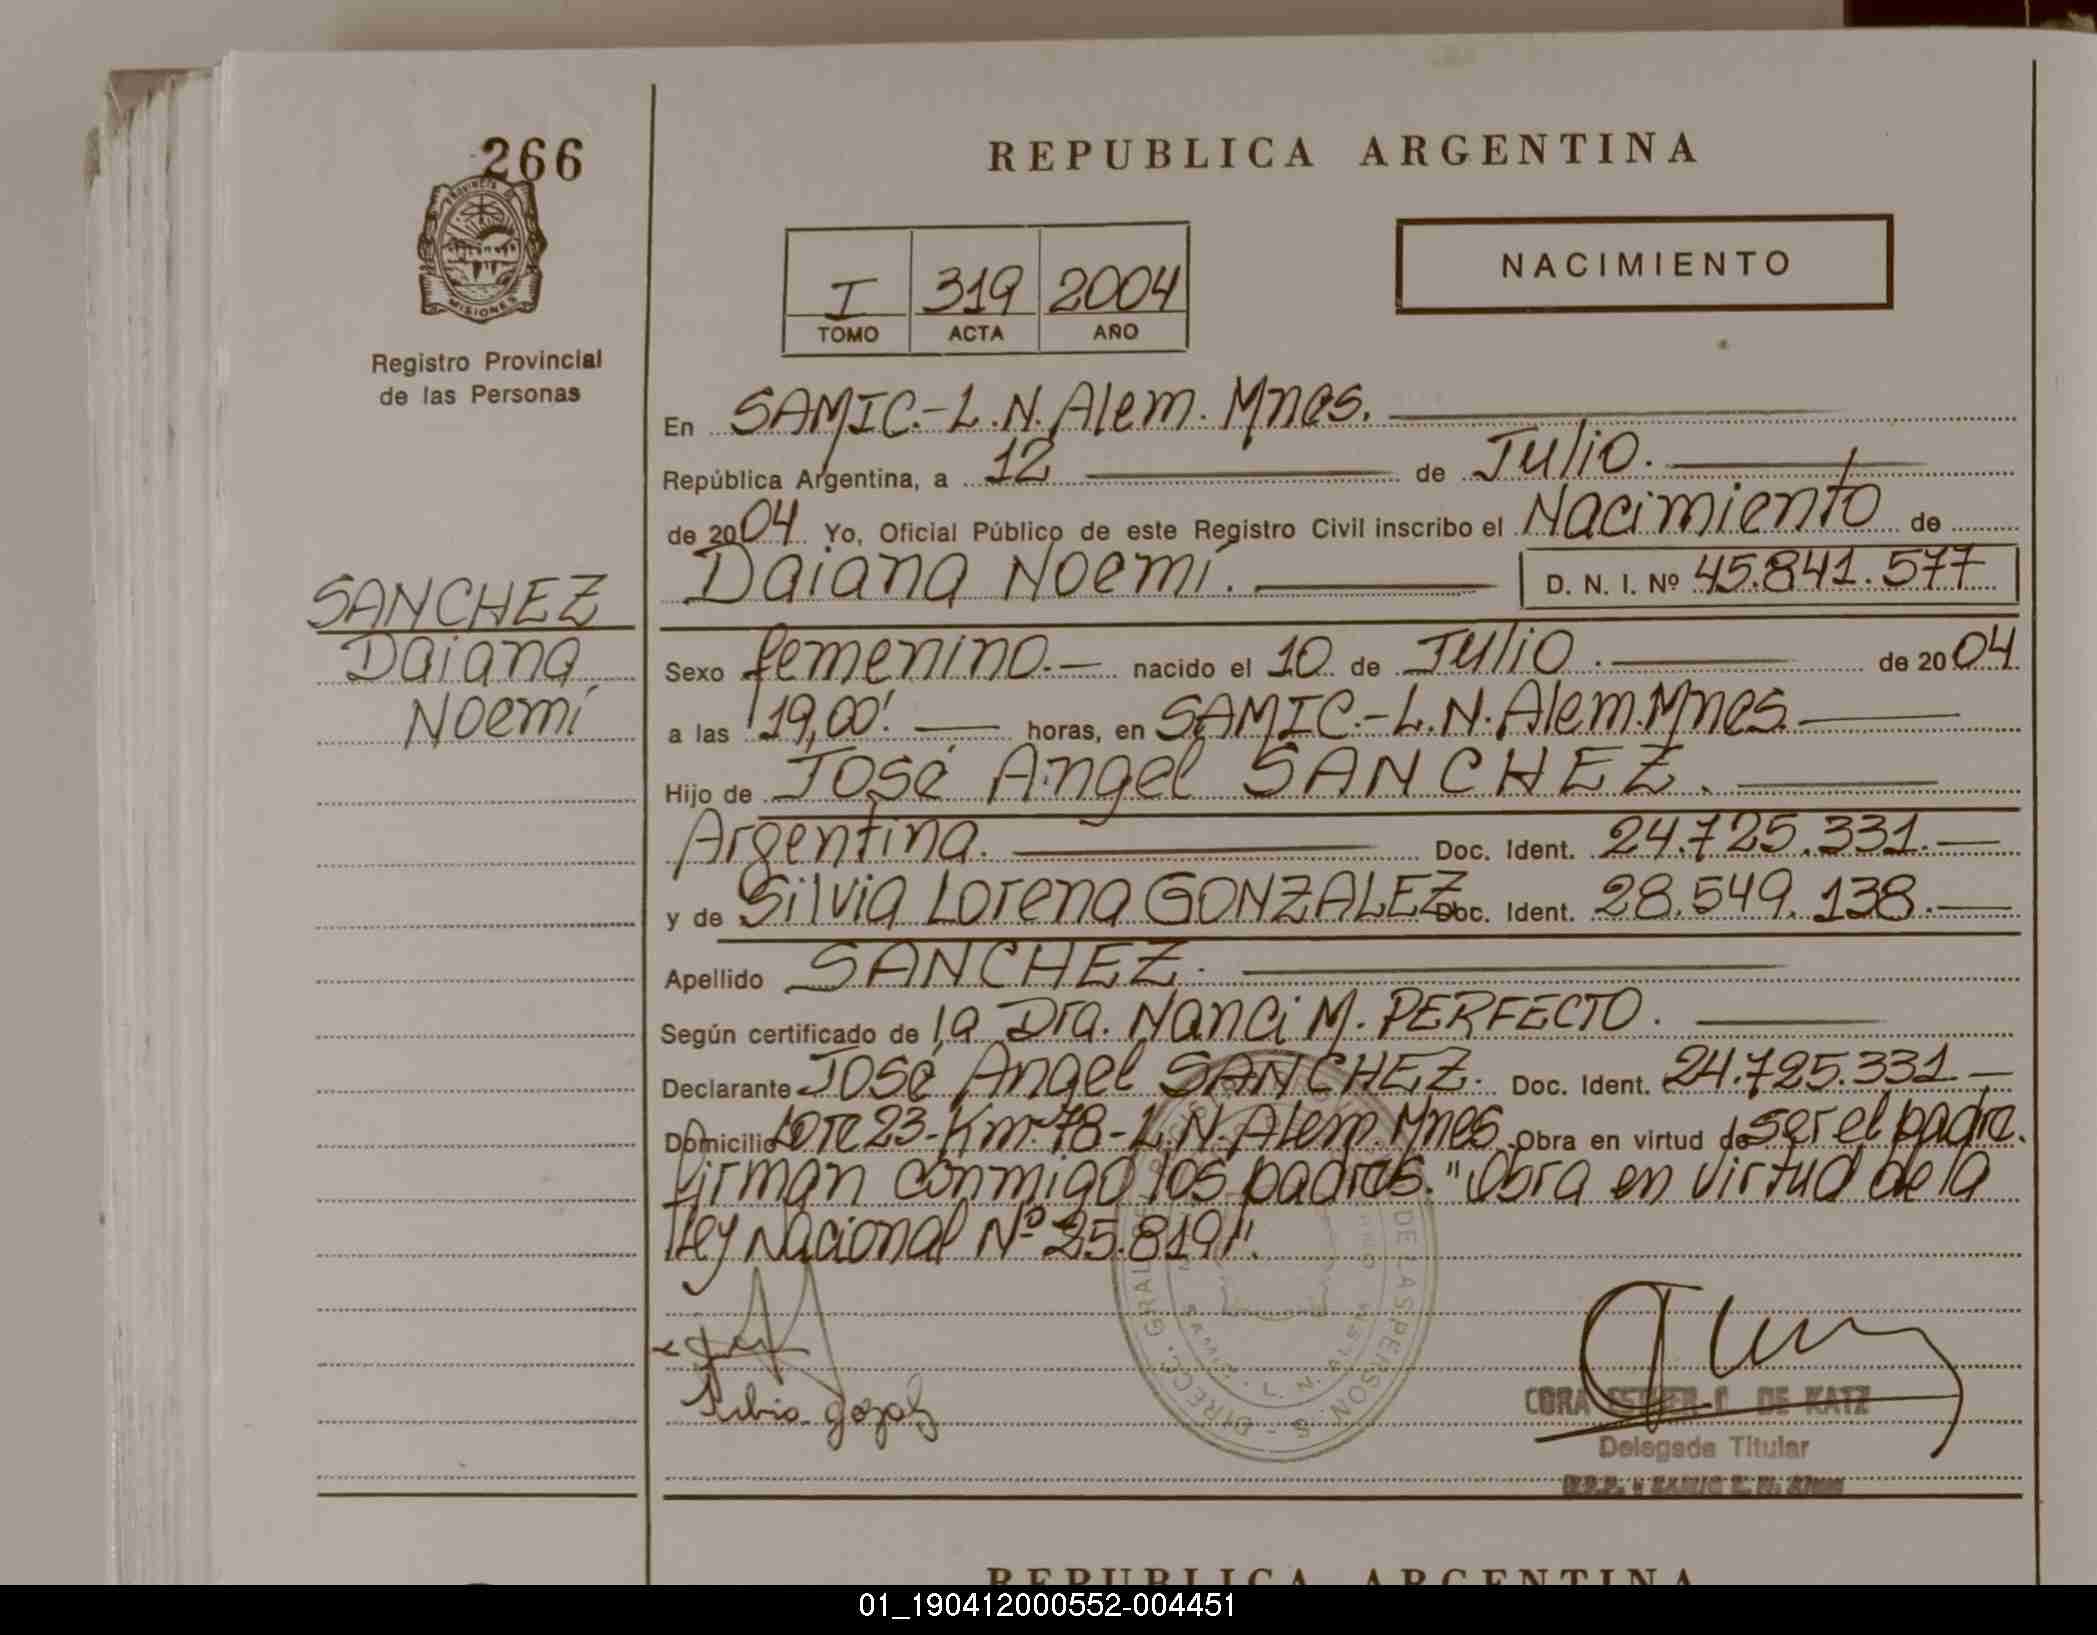 266
PROVINCIA DE
MISIONES
Registro Provincial
de las Personas
SANCHEZ
Daiana
Noemí
REPUBLICA ARGENTINA
I 319 2004
TOMO ACTA AÑO
NACIMIENTO
En SAMIC.-L.N.Alem.Mnes.
República Argentina, a 12 de Julio.
de 2004 Yo, Oficial Público de este Registro Civil inscribo el Nacimiento de
Daiana Noemí. D. N. I. Nº 45.841.577
Sexo femenino.- nacido el 10 de Julio. de 2004.
a las 19,00'. horas, en SAMIC.-L.N.Alem.Mnes.
Hijo de José Angel SANCHEZ.
Argentina. Doc. Ident. 24.725.331.-
y de Silvia Lorena GONZALEZ Doc. Ident. 28.549.138.-
Apellido SANCHEZ.
Según certificado de la Dra. Nanci M. PERFECTO.
Declarante José Angel SANCHEZ. Doc. Ident. 24.725.331.-
Domicilio Lote 23-Km.78-L.N.Alem.Mnes. Obra en virtud de ser el padre.
Firman conmigo los padres. "Obra en virtud de la
Ley Nacional Nº 25.819".
DIRECC. GRAL. DE LAS PERSONAS
SAMIC. L. N. ALEM
CORA ESTHER C. DE KATZ
Delegada Titular
REPUBLICA ARGENTINA
01_190412000552-004451